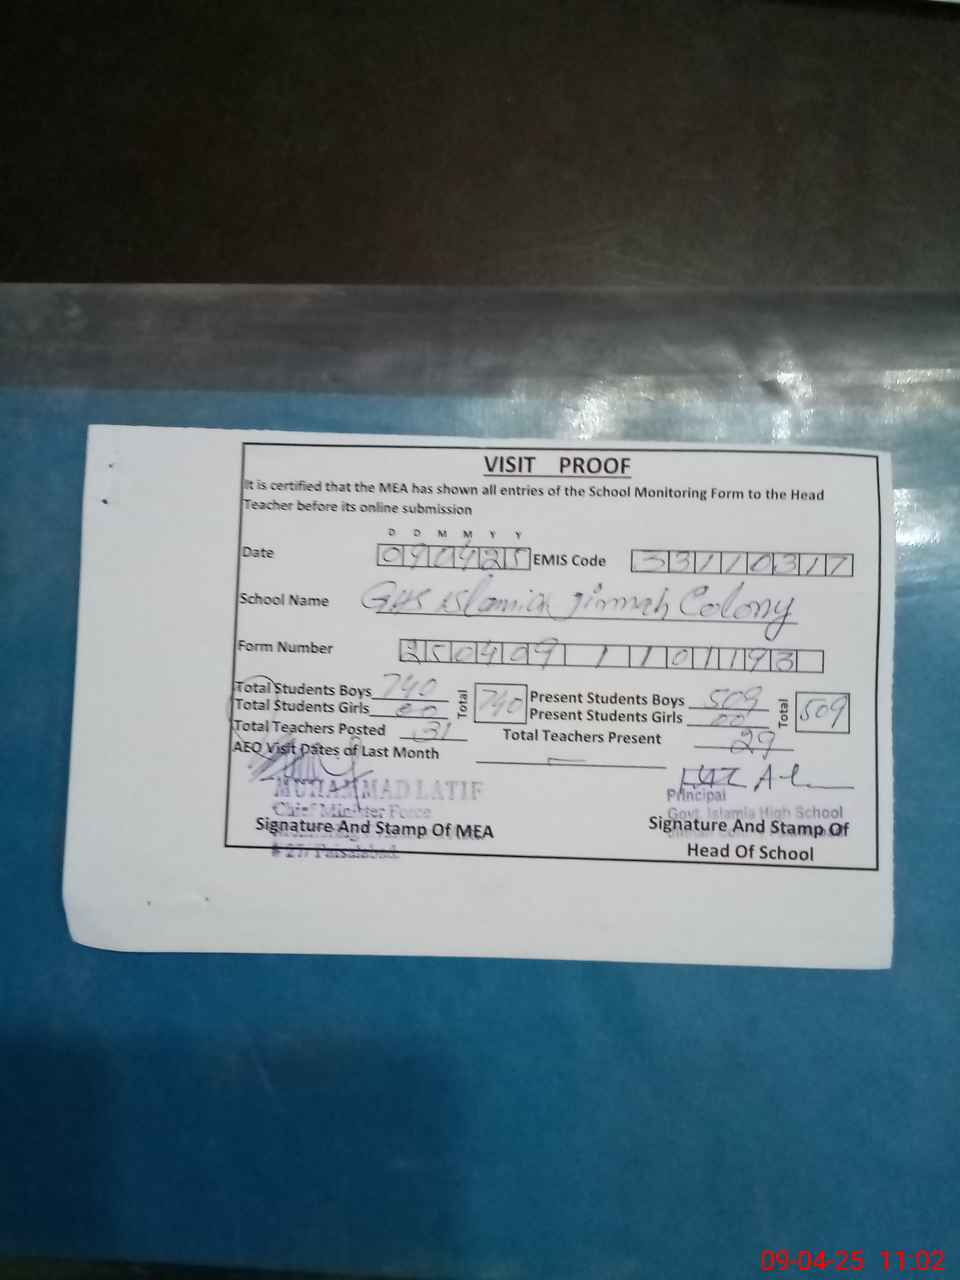 VISIT PROOF
It is certified that the MEA has shown all entries of the School Monitoring Form to the Head
Teacher before its online submission
D D M M Y Y
Date 090425 EMIS Code 33110317
School Name GHS Islamia Jinnah Colony
Form Number 250409 1 1 01193
Total Students Boys 740 Total 740 Present Students Boys 509 Total 509
Total Students Girls 00 Present Students Girls 00
Total Teachers Posted 31 Total Teachers Present 29
AEO Visit Dates of Last Month
MUHAMMAD LATIF
Chief Minister Force
Principal
Govt. Islamia High School
Signature And Stamp Of MEA
Signature And Stamp Of
Head Of School
# 27/ Faisalabad.
09-04-25 11:02